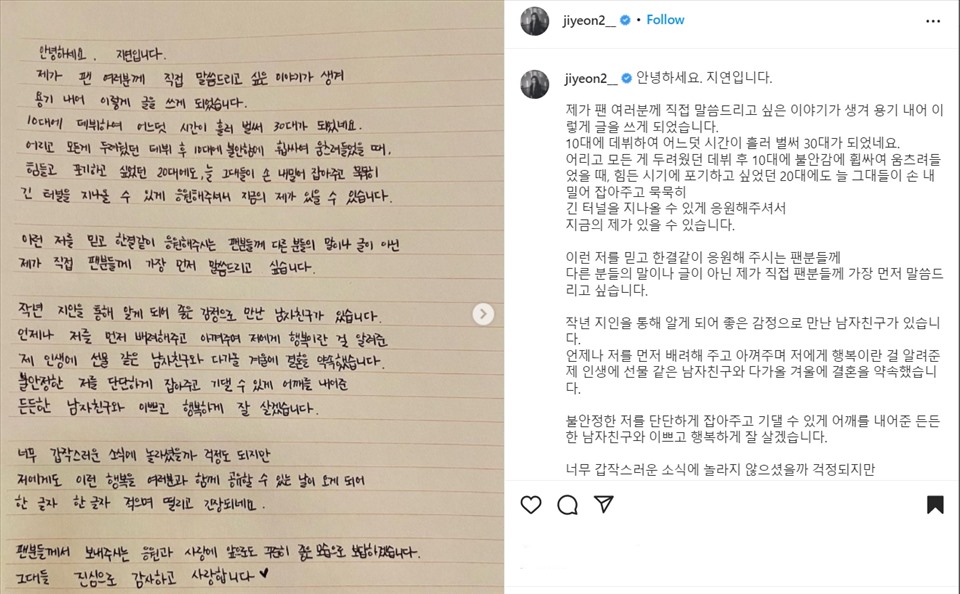 안녕하세요. 지연입니다.
제가 팬 여러분께 직접 말씀드리고 싶은 이야기가 생겨
용기 내어 이렇게 글을 쓰게 되었습니다.
10대에 데뷔하여 어느덧 시간이 흘러 벌써 30대가 되었네요.
어리고 모든게 두려웠던 데뷔 후 10대에 불안함에 휩싸여 움츠려들었을 때,
힘들고 포기하고 싶었던 20대에도, 늘 그대들이 손 내밀어 잡아주고 묵묵히
긴 터널을 지나올 수 있게 응원해주셔서 지금의 제가 있을 수 있습니다.
이런 저를 믿고 한결같이 응원해주시는 팬분들께 다른 분들의 말이나 글이 아닌
제가 직접 팬분들께 가장 먼저 말씀드리고 싶습니다.
작년 지인을 통해 알게 되어 좋은 감정으로 만난 남자친구가 있습니다.
언제나 저를 먼저 배려해주고 아껴주며 저에게 행복이란 걸 알려준
제 인생에 선물 같은 남자친구와 다가올 겨울에 결혼을 약속했습니다.
불안정한 저를 단단하게 잡아주고 기댈 수 있게 어깨를 내어준
든든한 남자친구와 이쁘고 행복하게 잘 살겠습니다.
너무 갑작스러운 소식에 놀라셨을까 걱정도 되지만
저에게도 이런 행복을 여러분과 함께 공유할 수 있는 날이 오게 되어
한 글자 한 글자 적으며 떨리고 긴장되네요.
팬분들께서 보내주시는 응원과 사랑에 앞으로도 꾸준히 좋은 모습으로 보답하겠습니다.
그대들 진심으로 감사하고 사랑합니다 ♥
jiyeon2__ • Follow
jiyeon2__ 안녕하세요. 지연입니다.
제가 팬 여러분께 직접 말씀드리고 싶은 이야기가 생겨 용기 내어 이
렇게 글을 쓰게 되었습니다.
10대에 데뷔하여 어느덧 시간이 흘러 벌써 30대가 되었네요.
어리고 모든 게 두려웠던 데뷔 후 10대에 불안감에 휩싸여 움츠려들
었을 때, 힘든 시기에 포기하고 싶었던 20대에도 늘 그대들이 손 내
밀어 잡아주고 묵묵히
긴 터널을 지나올 수 있게 응원해주셔서
지금의 제가 있을 수 있습니다.
이런 저를 믿고 한결같이 응원해 주시는 팬분들께
다른 분들의 말이나 글이 아닌 제가 직접 팬분들께 가장 먼저 말씀드
리고 싶습니다.
작년 지인을 통해 알게 되어 좋은 감정으로 만난 남자친구가 있습니
다.
언제나 저를 먼저 배려해 주고 아껴주며 저에게 행복이란 걸 알려준
제 인생에 선물 같은 남자친구와 다가올 겨울에 결혼을 약속했습니
다.
불안정한 저를 단단하게 잡아주고 기댈 수 있게 어깨를 내어준 든든
한 남자친구와 이쁘고 행복하게 잘 살겠습니다.
너무 갑작스러운 소식에 놀라지 않으셨을까 걱정되지만